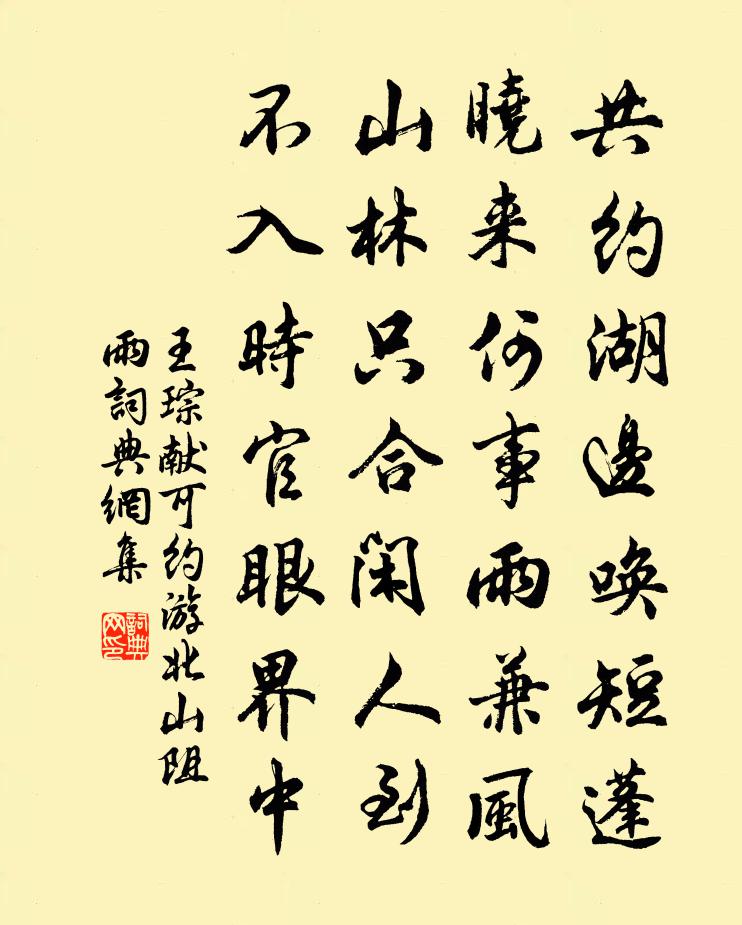 共约湖邊唤短蓬
曉来何事雨兼風
山林只合闲人到
不入時官眼界中
王琮献可约游北山阻
雨詞典網集
詞典
网印